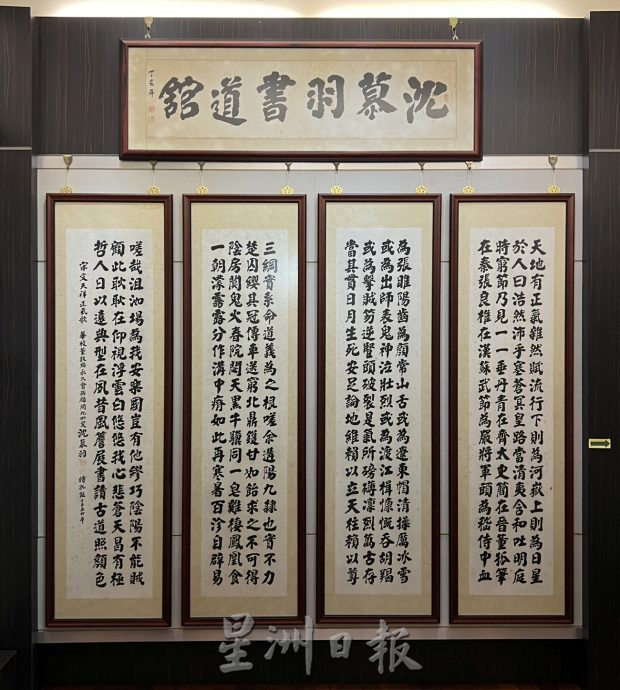 沈慕羽書道館
丁亥年
天地有正氣雜然賦流行下則為河嶽上則為日星
於人曰浩然沛乎塞蒼冥皇路當清夷含和吐明庭
時窮節乃見一一垂丹青在齊太史簡在晉董狐筆
在秦張良椎在漢蘇武節為嚴將軍頭為嵇侍中血
為張睢陽齒為顏常山舌或為遼東帽清操厲冰雪
或為出師表鬼神泣壯烈或為渡江楫慷慨吞胡羯
或為擊賊笏逆豎頭破裂是氣所磅礴凜烈萬古存
當其貫日月生死安足論地維賴以立天柱賴以尊
三綱實系命道義為之根嗟余遘陽九隸也實不力
楚囚纓其冠傳車送窮北鼎鑊甘如飴求之不可得
陰房闃鬼火春院閟天黑牛驥同一皂雞棲鳳凰食
一朝濛霧露分作溝中瘠如此再寒暑百沴自辟易
嗟哉沮洳場為我安樂國豈有他繆巧陰陽不能賊
顧此耿耿在仰視浮雲白悠悠我心悲蒼天曷有極
哲人日以遠典型在夙昔風簷展書讀古道照顏色
宋文天祥正氣歌 沈慕羽
星洲日報